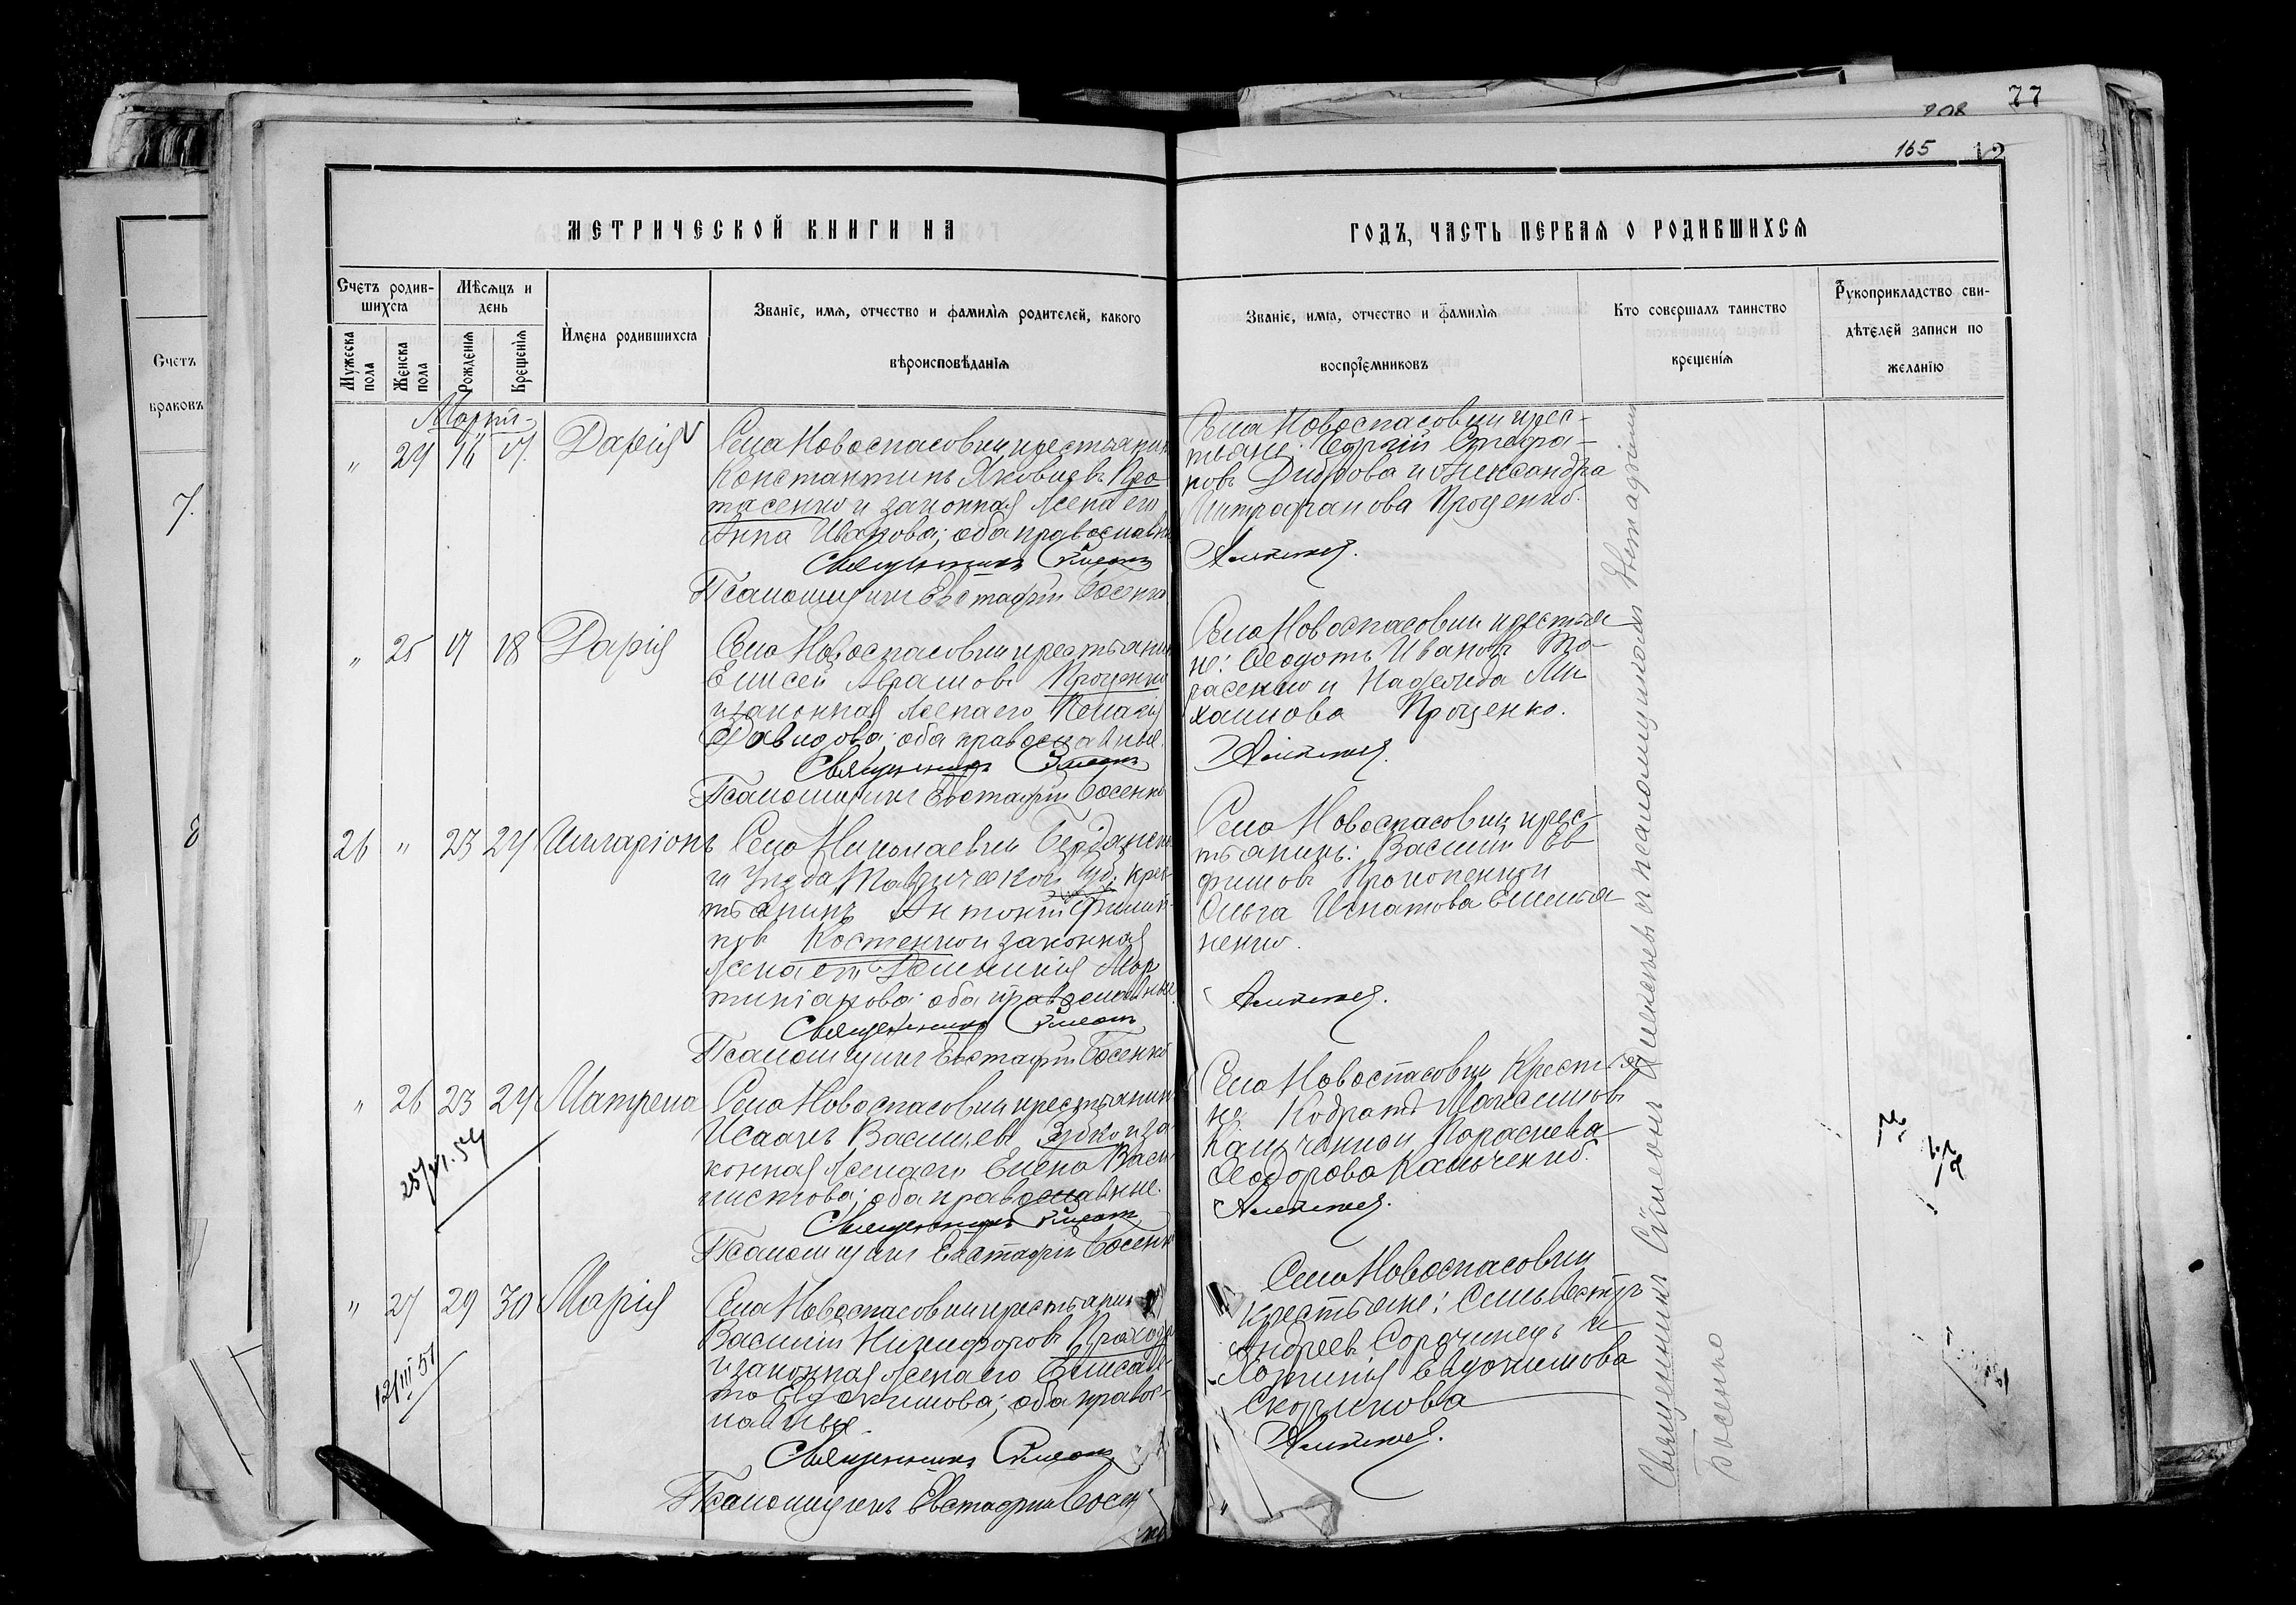 77
208
165
12
МЕТРИЧЕСКОЙ КНИГИ НА
ГОДЪ, ЧАСТЬ ПЕРВАЯ О РОДИВШИХСЯ
Счетъ
браковъ
7.
8
Счетъ родив-
шихся
Мѣсяцъ и
день
Мужеска
пола
Женска
пола
Рожденія
Крещенія
Имена родившихся
Званіе, имя, отчество и фамилія родителей, какого
вѣроисповѣданія
Званіе, имя, отчество и фамилія
воспріемниковъ
Кто совершалъ таинство
крещенія
Рукоприкладство сви-
дѣтелей записи по
желанію
Мартъ
" 24 16 17 Дарія
Села Новоспасовки крестьянинъ
Константинъ Яковлевъ Про-
тасенко и законная жена его
Анна Иванова; оба православные
Священникъ
Псаломщикъ Евстафій Босенко
Села Новоспасовки крес-
тьяне: Георгій Стефа-
новъ Диброва и Александра
Митрофанова Проценко.
" 25 17 18 Дарія
Села Новоспасовки крестьянинъ
Елисей Аврамовъ Проценко
и законная жена его Пелагія
Давидова; оба православные.
Священникъ
Псаломщикъ Евстафій Босенко
Села Новоспасовки крестья-
не: Ѳеодотъ Ивановъ
и Надежда Ми-
хаилова Проценко.
26 " 23 24 Илларіонъ
Села Николаевки Бердянска-
го Уѣзда Таврической Губ. крес-
тьянинъ Антоній Филип-
повъ Костенко и законная
жена его Домникія Мар-
тиніанова; оба православные.
Священникъ
Псаломщикъ Евстафій Босенко
Села Новоспасовки крес-
тьянинъ: Василій Ев-
фимовъ Прокопенко и
Ольга Игнатова Емелья-
ненко.
" 26 23 24 Матрена
25/VI.54
Села Новоспасовки крестьянинъ
Исаакъ Васильевъ Зубко и за-
конная жена его Елена Васи-
листова; оба православные.
Священникъ
Псаломщикъ Евстафій Босенко
Села Новоспасовки Крестья-
не: Кодратъ Максимовъ
Кальченко и Параскева
Ѳеодорова Кальченко.
" 27 29 30 Марія
12/III 51
Села Новоспасовки крестьянинъ
Василій Никифоровъ Проходя
и законная жена его Елисаве-
та Евдокимова; оба правос-
лавные.
Священникъ
Псаломщикъ Евстафій Босен-
ко
Села Новоспасовки
крестьяне: Сильвестръ
Андреевъ Сорочинецъ и
Евдокимова
Скорикова
Священникъ Сѵмеонъ съ псаломщикомъ Евстафіемъ
Босенко